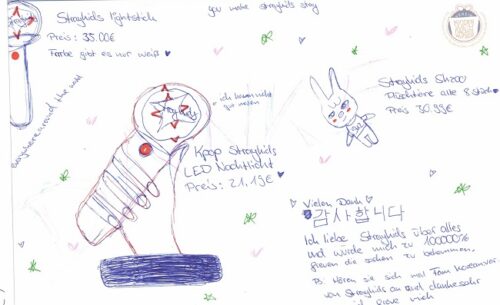 Straykids lightstick
Preis: 35.00€
Farbe gibt es nur weiß ♥
you make straykids stay
everywhere around the world
Straykids
ich kann nicht
gut malen
Kpop Straykids
LED Nachtlicht
Preis: 21,19€ ♥
Straykids Skzoo
Plüschtiere alle 8 Stück
Preis 30.99€
♥ Vielen Dank ♥
감사합니다
Ich liebe Straykids über alles
und würde mich zu 100000%
freuen die sachen zu bekommen.
hören sie sich mal
von Straykids an